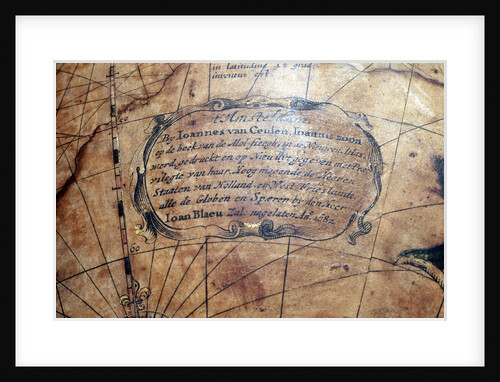 in latitudine 52 grad.
inventur est.
t'Amsteldam
By Ioannes van Ceulen, Ioannis zoon
op de hoek van de
werd gedruckt en op Nieu uytgegeven met Pre
vilegie van haar Hoog mogende de Heeren
Staaten van Holland, en West Vrieslandt.
alle de Globen en Spæren by den Heer
Ioan Blaeu Zal: nagelaten Aº 1682
60